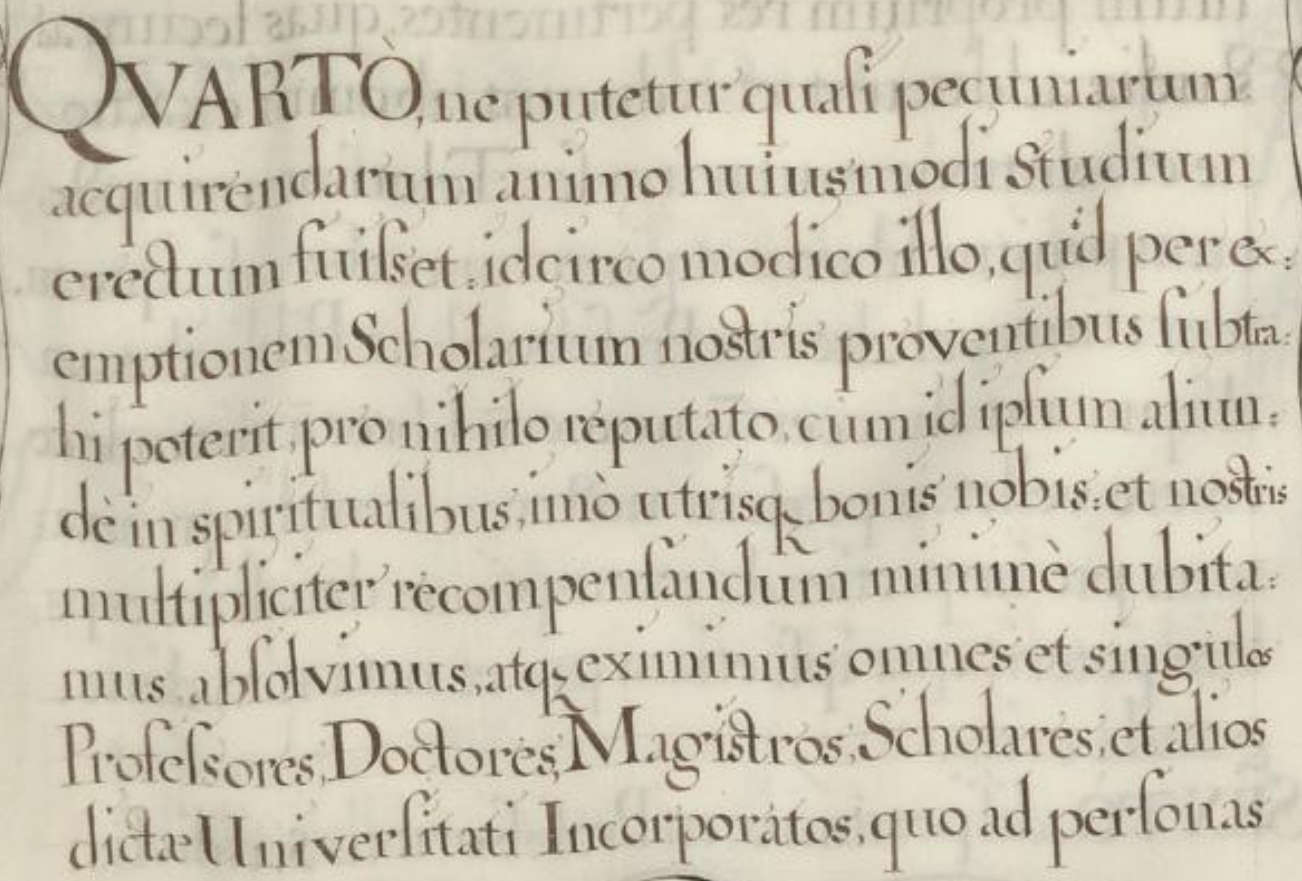 QVARTÒ, ne putetur quaſi pecuniarum
acquirendarum animo huiusmodi Studium
erectum fuiſset, idcirco modico illo, quid per ex:
emptionem Scholarium nostris proventibus ſubtra:
hi poterit, pro nihilo reputato, cum id ipſum aliun:
dè in spiritualibus, imò utrisq, bonis nobis, et nostris
multipliciter recompenſandum minimè dubita:
mus abſolvimus, atq, eximimus omnes et singulos
Profeſsores, Doctores, Magistros, Scholares, et alios
dictæ Univerſitati Incorporatos, quo ad perſonas